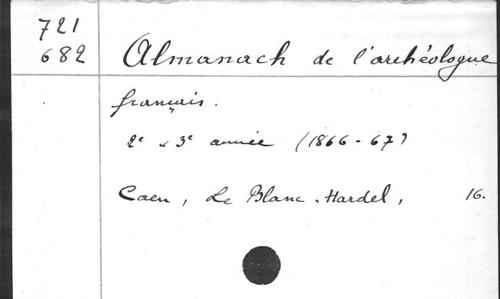 721
682
Almanach de l'archéologue
français.
2e & 3e année (1866-67)
Caen, Le Blanc-Hardel, 16.